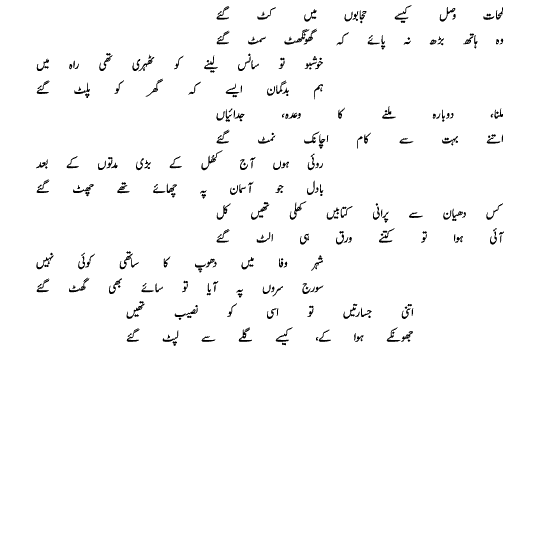 لمحات وصل کیسے حجابوں میں کٹ گئے
وہ ہاتھ بڑھ نہ پائے کہ گھونگھٹ سمٹ گئے
خوشبو تو سانس لینے کو ٹھہری تھی راہ میں
ہم بدگمان ایسے کہ گھر کو پلٹ گئے
ملنا، دوبارہ ملنے کا وعدہ، جدائیاں
اتنے بہت سے کام اچانک نمٹ گئے
روئی ہوں آج کھل کے بڑی مدتوں کے بعد
بادل جو آسمان پہ چھائے تھے چھٹ گئے
کس دھیان سے پرانی کتابیں کھلی تھیں کل
آئی ہوا تو کتنے ورق ہی الٹ گئے
شہر وفا میں دھوپ کا ساتھی کوئی نہیں
سورج سروں پہ آیا تو سائے بھی گھٹ گئے
اتنی جسارتیں تو اسی کو نصیب تھیں
جھونکے ہوا کے، کیسے گلے سے لپٹ گئے